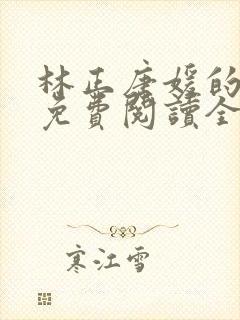 林正唐媛的
免費閱讀全
寒江雪